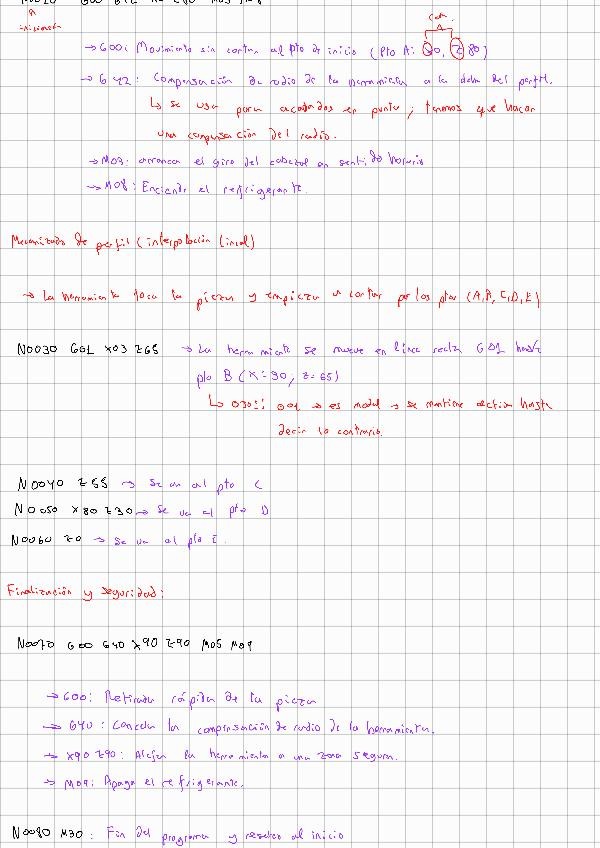 Cota
A
→ G00: Movimiento sin cortar al pto de inicio (Pto A: X0, Z80)
→ G42: Compensación de radio de la herramienta a la dcha del perfil.
↳ se usa para acabados en punta; tenemos que hacer
una compensación del radio.
→ M03: arranca el giro del cabezal en sentido horario
→ M08: Enciende el refrigerante.
Mecanizado de perfil (interpolación lineal)
→ La herramienta toca la pieza y empieza a cortar por los ptos (A,B,C,D,E)
N0030 G01 X03 Z65 → La herramienta se mueve en línea recta G01 hasta
pto B (X=30, Z=65)
↳ G01 → es modal → se mantiene activa hasta
decir lo contrario.
N0040 Z55 → Se va al pto C
N0050 X80 Z30 → Se va al pto D
N0060 Z0 → Se va al pto E.
Finalización y seguridad:
N0070 G00 G40 X90 Z90 M05 M09
→ G00: Retirada rápida de la pieza
→ G40: Cancela la compensación de radio de la herramienta.
→ X90 Z90: Aleja la herramienta a una zona segura.
→ M09: Apaga el refrigerante.
N0080 M30: Fin del programa y reseteo al inicio